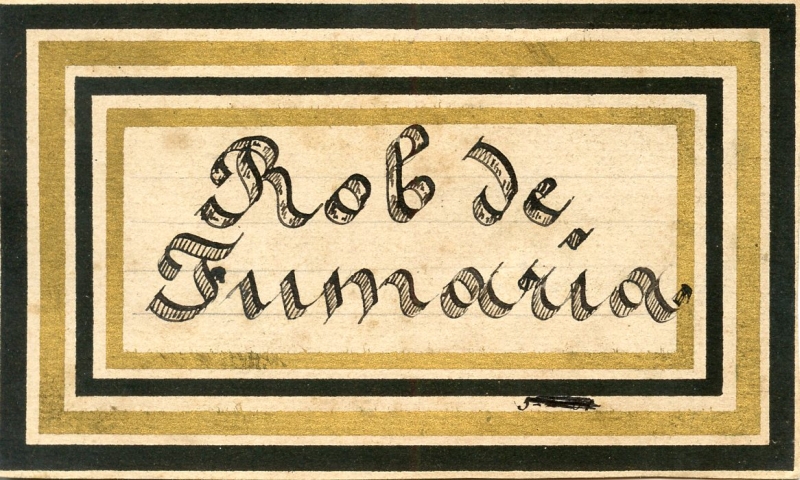 Rob de
Fumaria